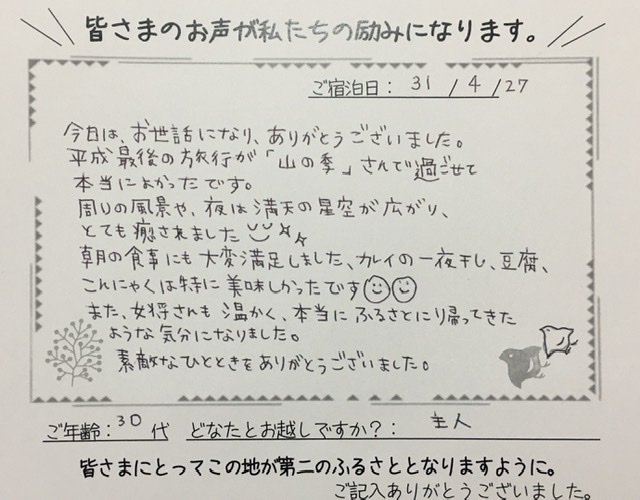 皆さまのお声が私たちの励みになります。
ご宿泊日: 31 / 4 / 27
今日は、お世話になり、ありがとうございました。
平成最後の旅行が「山の季」さんで過ごせて
本当によかったです。
周りの風景や、夜は満天の星空が広がり、
とても癒されました
朝の食事にも大変満足しました、カレイの一夜干し、豆腐、
こんにゃくは特に美味しかったです
また、女将さんも温かく、本当にふるさとに帰ってきた
ような気分になりました。
素敵なひとときをありがとうございました。
ご年齢: 30 代 どなたとお越しですか?: 主人
皆さまにとってこの地が第二のふるさととなりますように。
ご記入ありがとうございました。